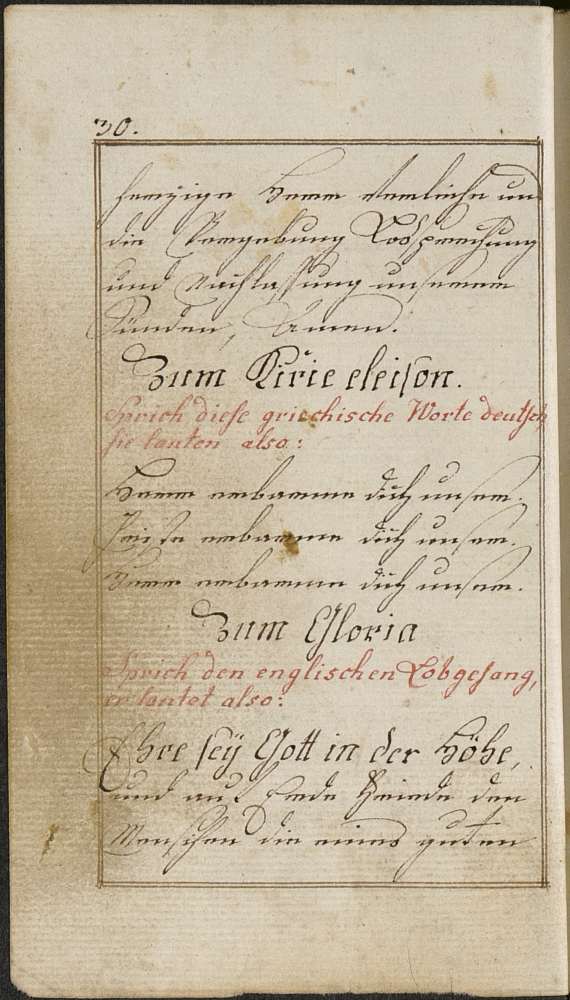 30.
herzige Herr verleihe uns
die Vergebung Lossprechung
und Nachlassung unserer
Sünden, Amen.
Zum Kirie eleison.
Sprich diese griechische Worte deutsch
sie lauten also:
Herr erbarme dich unser.
Christe erbarme dich unser.
Herr erbarme dich unser.
Zum Gloria
Sprich den englischen Lobgesang,
er lautet also:
Ehre seÿ Gott in der Höhe,
und auf Erde Friede den
Menschen die eines guten